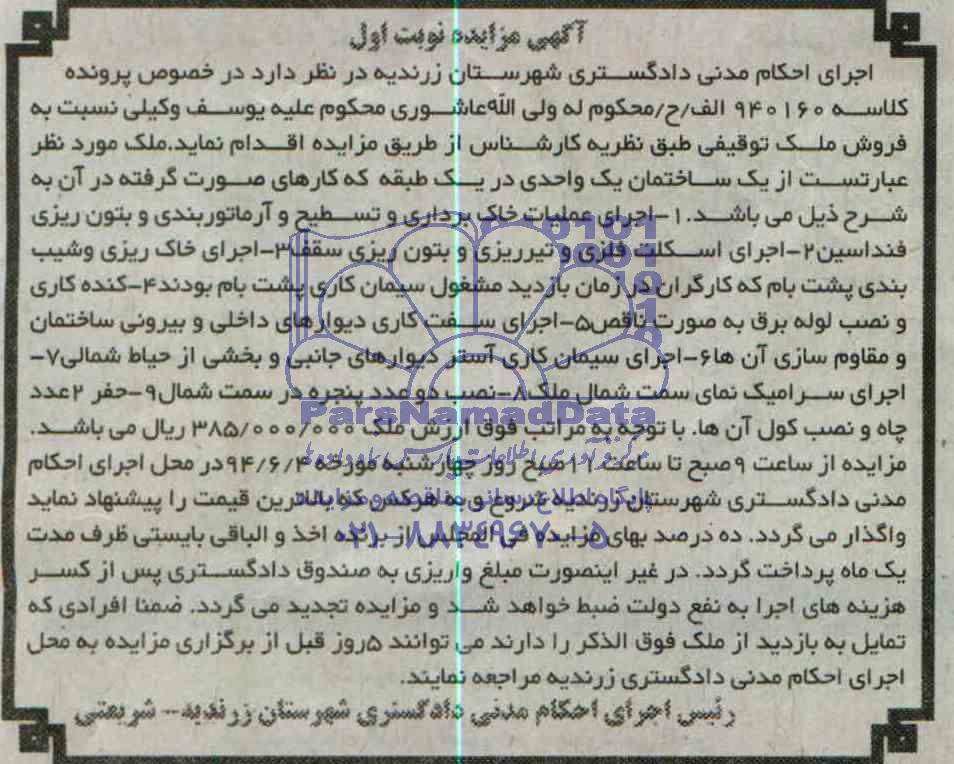 آگهی مزایده نوبت اول
اجرای احکام مدنی دادگستری شهرستان زرندیه در نظر دارد در خصوص پرونده
کلاسه ۹۴۰۱۶۰ الف/ح/محکوم له ولی الله عاشوری محکوم علیه یوسف وکیلی نسبت به
فروش ملک توقیفی طبق نظریه کارشناس از طریق مزایده اقدام نماید.ملک مورد نظر
عبارتست از یک ساختمان یک واحدی در یک طبقه که کارهای صورت گرفته در آن به
شرح ذیل می باشد.۱-اجرای عملیات خاک برداری و تسطیح و آرماتوربندی و بتون ریزی
فنداسین۲-اجرای اسکلت فلزی و تیرریزی و بتون ریزی سقف۳-اجرای خاک ریزی وشیب
بندی پشت بام که کارگران در زمان بازدید مشغول سیمان کاری پشت بام بودند۴-کنده کاری
و نصب لوله برق به صورت ناقص۵-اجرای سفت کاری دیوارهای داخلی و بیرونی ساختمان
و مقاوم سازی آن ها۶-اجرای سیمان کاری آستر دیوارهای جانبی و بخشی از حیاط شمالی۷-
اجرای سرامیک نمای سمت شمال ملک۸-نصب دو عدد پنجره در سمت شمال۹-حفر ۲عدد
ParsNamadData
چاه و نصب کول آن ها. با توجه به مراتب فوق ارزش ملک ۳۸۵/۰۰۰/۰۰۰ ریال می باشد.
مزایده از ساعت ۹صبح تا ساعت ۱۱صبح روز چهارشنبه مورخه ۹۴/۶/۴در محل اجرای احکام
مدنی دادگستری شهرستان زرندیه شروع و به هرکس که بالاترین قیمت را پیشنهاد نماید
پایگاه اطلاع رسانی مناقصه و مزایده
واگذار می گردد. ده درصد بهای مزایده فی المجلس از برنده اخذ و الباقی بایستی ظرف مدت
۰۲۱-۸۸۳۴۹۶۷۰-۵
یک ماه پرداخت گردد. در غیر اینصورت مبلغ واریزی به صندوق دادگستری پس از کسر
هزینه های اجرا به نفع دولت ضبط خواهد شد و مزایده تجدید می گردد. ضمنا افرادی که
تمایل به بازدید از ملک فوق الذکر را دارند می توانند ۵روز قبل از برگزاری مزایده به محل
اجرای احکام مدنی دادگستری زرندیه مراجعه نمایند.
رئیس اجرای احکام مدنی دادگستری شهرستان زرندیه-- شریعتی